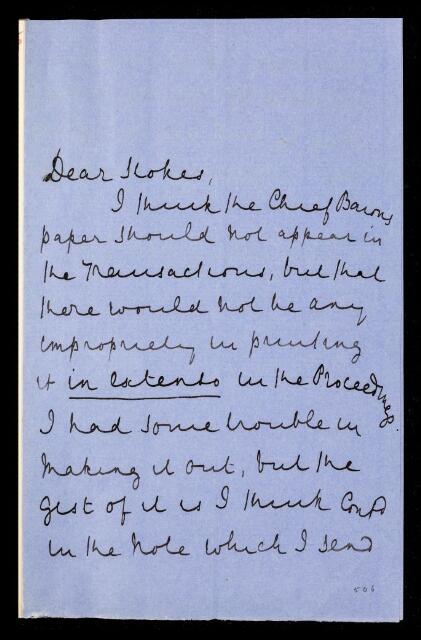 Dear Stokes,
I think the Chief Barons
paper should not appear in
the Transactions, but that
there would not be any
impropriety in printing
it in extenso in the Proceedings.
I had some trouble in
making it out, but the
gist of it is I think contd
in the Note which I send
506